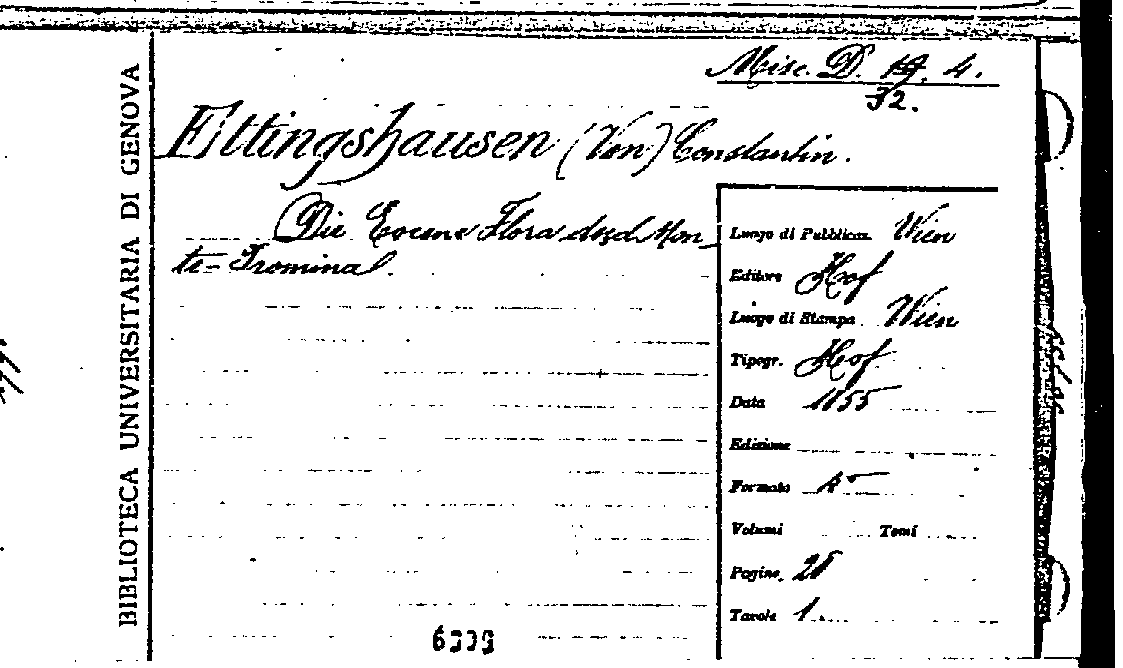 BIBLIOTECA UNIVERSITARIA DI GENOVA
Misc. D. 4.
32.
Ettingshausen (Von) Constantin.
Die Eocene Flora des Mon_
te-Promina.
Luogo di Pubblicaz. Wien
Editore Hof
Luogo di Stampa Wien
Tipogr. Hof
Data 1855
Edizione
Formato 4°
Volumi Tomi
Pagine 28
Tavole 1.